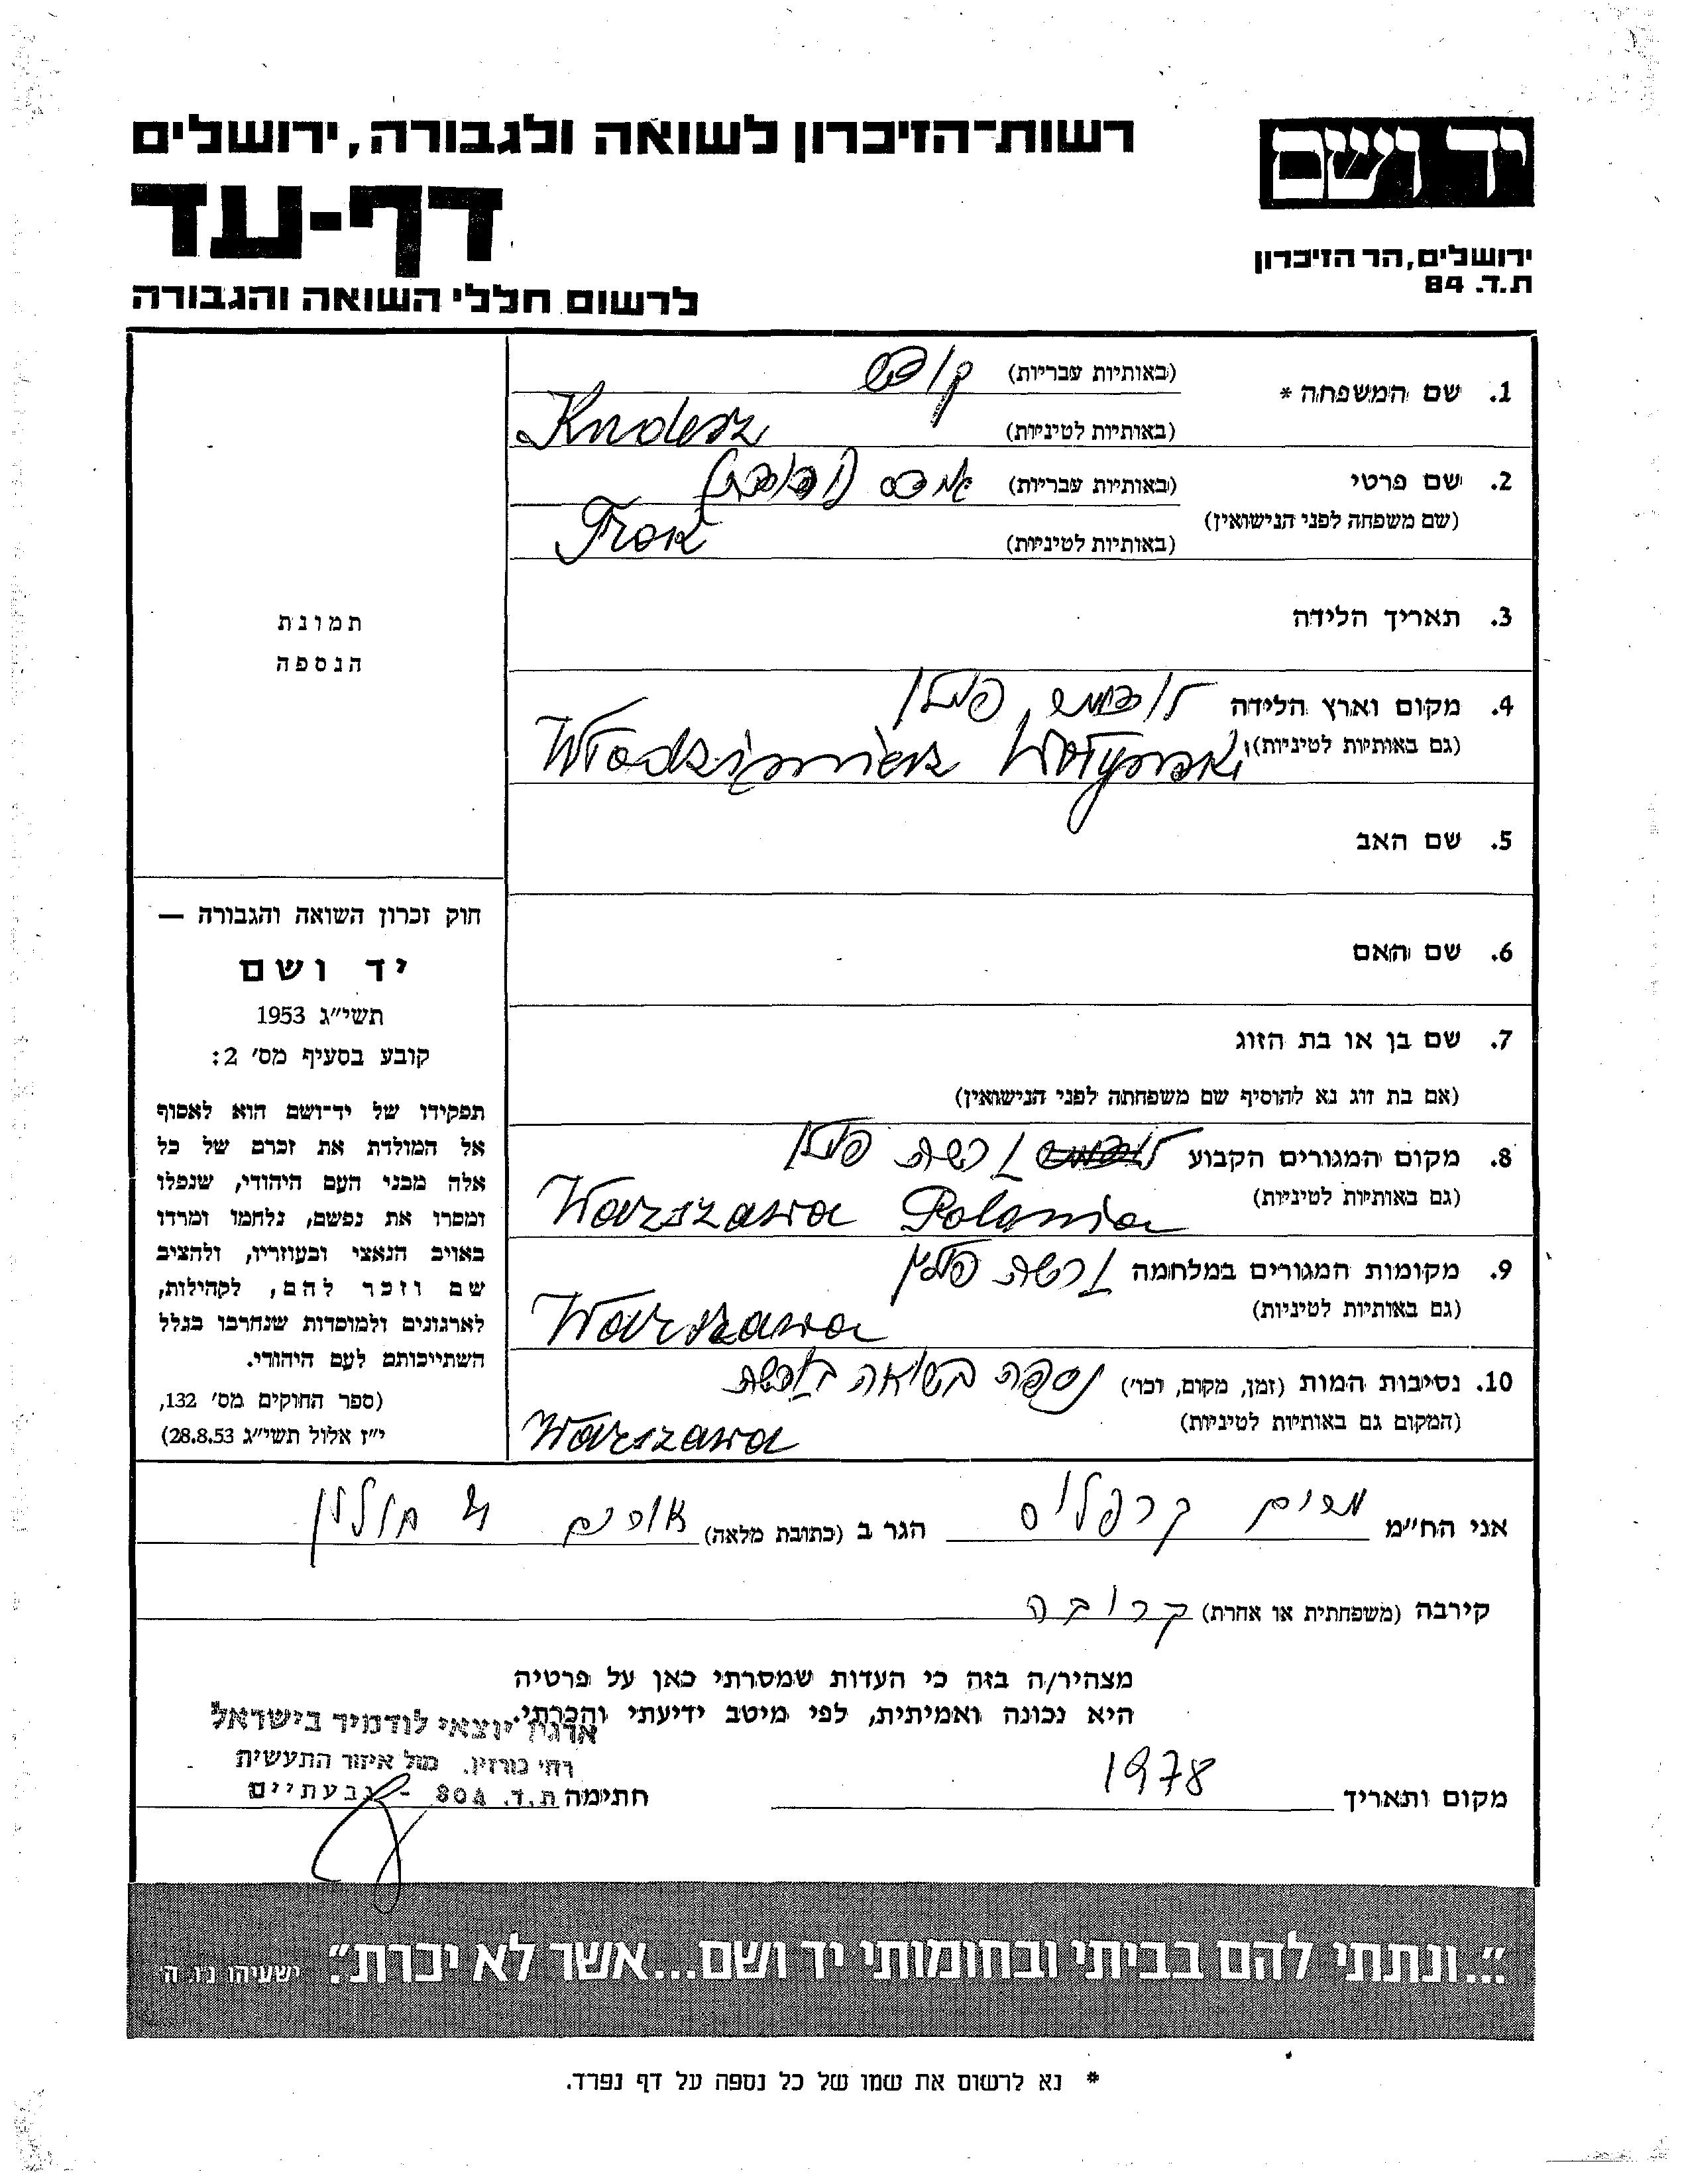 יד ושם
רשות־הזיכרון לשואה ולגבורה, ירושלים
דף-עד
ירושלים, הר הזיכרון
ת.ד. 84
לרשום חללי השואה והגבורה
1. שם המשפחה * (באותיות עבריות)
(באותיות לטיניות)
2. שם פרטי (באותיות עבריות)
(שם משפחה לפני הנישואין)
(באותיות לטיניות) Frok
3. תאריך הלידה
תמונת
הנספה
4. מקום וארץ הלידה פולין
(גם באותיות לטיניות) Włodzimierz Wołynski
5. שם האב
6. שם האם
7. שם בן או בת הזוג
(אם בת זוג נא להוסיף שם משפחתה לפני הנישואין)
8. מקום המגורים הקבוע ורשה פולין
(גם באותיות לטיניות) Warszawa Polania
9. מקומות המגורים במלחמה ורשה פולין
(גם באותיות לטיניות) Warszawa
10. נסיבות המות (זמן, מקום, וכו׳) נספה בשואה בורשה
(המקום גם באותיות לטיניות) Warszawa
חוק זכרון השואה והגבורה —
יד ושם
תשי״ג 1953
קובע בסעיף מס׳ 2:
תפקידו של יד־ושם הוא לאסוף
אל המולדת את זכרם של כל
אלה מבני העם היהודי, שנפלו
ומסרו את נפשם, נלחמו ומרדו
באויב הנאצי ובעוזריו, ולהציב
שם וזכר להם, לקהילות,
לארגונים ולמוסדות שנחרבו בגלל
השתייכותם לעם היהודי.
(ספר החוקים מס׳ 132,
י״ז אלול תשי״ג 28.8.53)
אני הח״מ מרים קרפלוס הגר ב (כתובת מלאה) חולון
קירבה (משפחתית או אחרת) קרובה
מצהיר/ה בזה כי העדות שמסרתי כאן על פרטיה
היא נכונה ואמיתית, לפי מיטב ידיעתי והכרתי.
ארגון יוצאי לודמיר בישראל
רח׳ כורזין, מול איזור התעשיה
ת.ד. 804 - גבעתיים
מקום ותאריך 1978 חתימה
״...ונתתי להם בביתי ובחומותי יד ושם...אשר לא יכרת״. ישעיהו נ״ו, ה׳
* נא לרשום את שמו של כל נספה על דף נפרד.